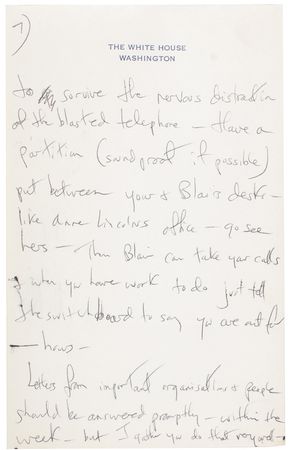 7)
THE WHITE HOUSE
WASHINGTON
to survive the nervous distraction
of the blasted telephone — Have a
partition (soundproof if possible)
put between your & Blairs desk —
like Anne Lincolns office — go see
hers — Then Blair can take your calls
& when you have work to do just tell
the switchboard to say you are out for
— hours —
Letters from important organisations & people
should be answered promptly — within the
week — but I gather you do that very well —